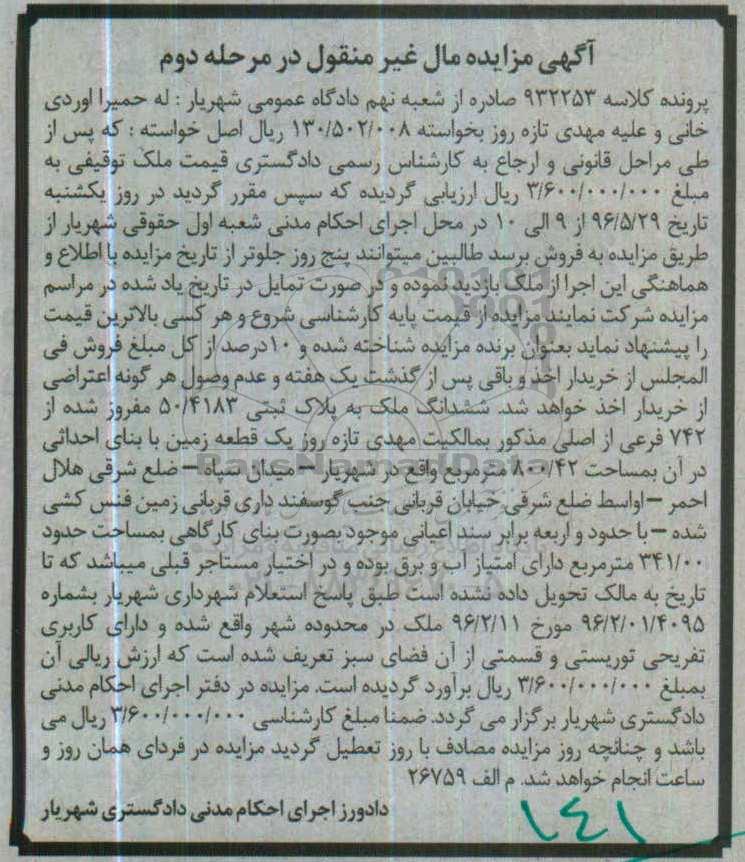 آگهی مزایده مال غیر منقول در مرحله دوم
پرونده کلاسه ۹۳۲۲۵۳ صادره از شعبه نهم دادگاه عمومی شهریار : له حمیرا اوردی
خانی و علیه مهدی تازه روز بخواسته ۱۳۰/۵۰۲/۰۰۸ ریال اصل خواسته : که پس از
طی مراحل قانونی و ارجاع به کارشناس رسمی دادگستری قیمت ملک توقیفی به
مبلغ ۳/۶۰۰/۰۰۰/۰۰۰ ریال ارزیابی گردیده که سپس مقرر گردید در روز یکشنبه
تاریخ ۹۶/۵/۲۹ از ۹ الی ۱۰ در محل اجرای احکام مدنی شعبه اول حقوقی شهریار از
طریق مزایده به فروش برسد طالبین میتوانند پنج روز جلوتر از تاریخ مزایده با اطلاع و
هماهنگی این اجرا از ملک بازدید نموده و در صورت تمایل در تاریخ یاد شده در مراسم
مزایده شرکت نمایند مزایده از قیمت پایه کارشناسی شروع و هر کسی بالاترین قیمت
را پیشنهاد نماید بعنوان برنده مزایده شناخته شده و ۱۰درصد از کل مبلغ فروش فی
المجلس از خریدار اخذ و باقی پس از گذشت یک هفته و عدم وصول هر گونه اعتراضی
از خریدار اخذ خواهد شد. ششدانگ ملک به پلاک ثبتی ۵۰/۴۱۸۳ مفروز شده از
۷۴۲ فرعی از اصلی مذکور بمالکیت مهدی تازه روز یک قطعه زمین با بنای احداثی
در آن بمساحت ۸۰۰/۴۲ مترمربع واقع در شهریار – میدان سپاه – ضلع شرقی هلال
احمر – اواسط ضلع شرقی خیابان قربانی جنب گوسفند داری قربانی زمین فنس کشی
شده – با حدود و اربعه برابر سند اعیانی موجود بصورت بنای کارگاهی بمساحت حدود
۳۴۱/۰۰ مترمربع دارای امتیاز آب و برق بوده و در اختیار مستاجر قبلی میباشد که تا
تاریخ به مالک تحویل داده نشده است طبق پاسخ استعلام شهرداری شهریار بشماره
۹۶/۲/۰۱/۴۰۹۵ مورخ ۹۶/۲/۱۱ ملک در محدوده شهر واقع شده و دارای کاربری
تفریحی توریستی و قسمتی از آن فضای سبز تعریف شده است که ارزش ریالی آن
بمبلغ ۳/۶۰۰/۰۰۰/۰۰۰ ریال برآورد گردیده است. مزایده در دفتر اجرای احکام مدنی
دادگستری شهریار برگزار می گردد. ضمنا مبلغ کارشناسی ۳/۶۰۰/۰۰۰/۰۰۰ ریال می
باشد و چنانچه روز مزایده مصادف با روز تعطیل گردید مزایده در فردای همان روز و
ساعت انجام خواهد شد. م الف ۲۶۷۵۹
دادورز اجرای احکام مدنی دادگستری شهریار
۱۴۱
ParsNamadData